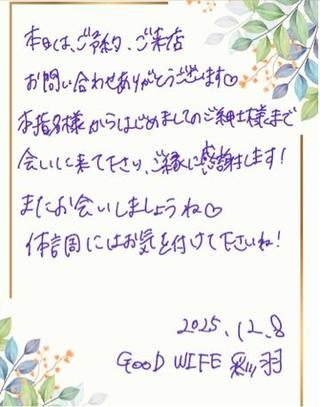 本日は、ご予約、ご来店
お問い合わせありがとうございます♡
本指名様からはじめましてのご紳士様まで
会いに来て下さり、ご縁に感謝します!
またお会いしましょうね♡
体調にはお気を付けて下さいね!
2025.12.8
GOOD WIFE 彩羽